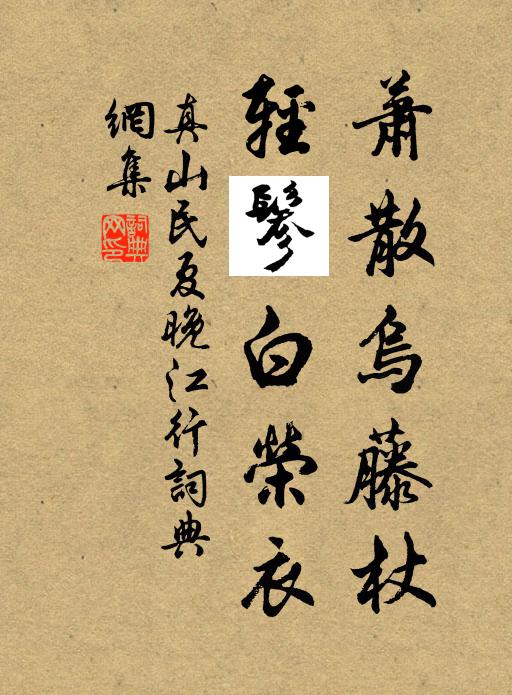 蕭散烏藤杖
輕鬖白榮衣
真山民夏晚江行詞典
網集
詞典
网印